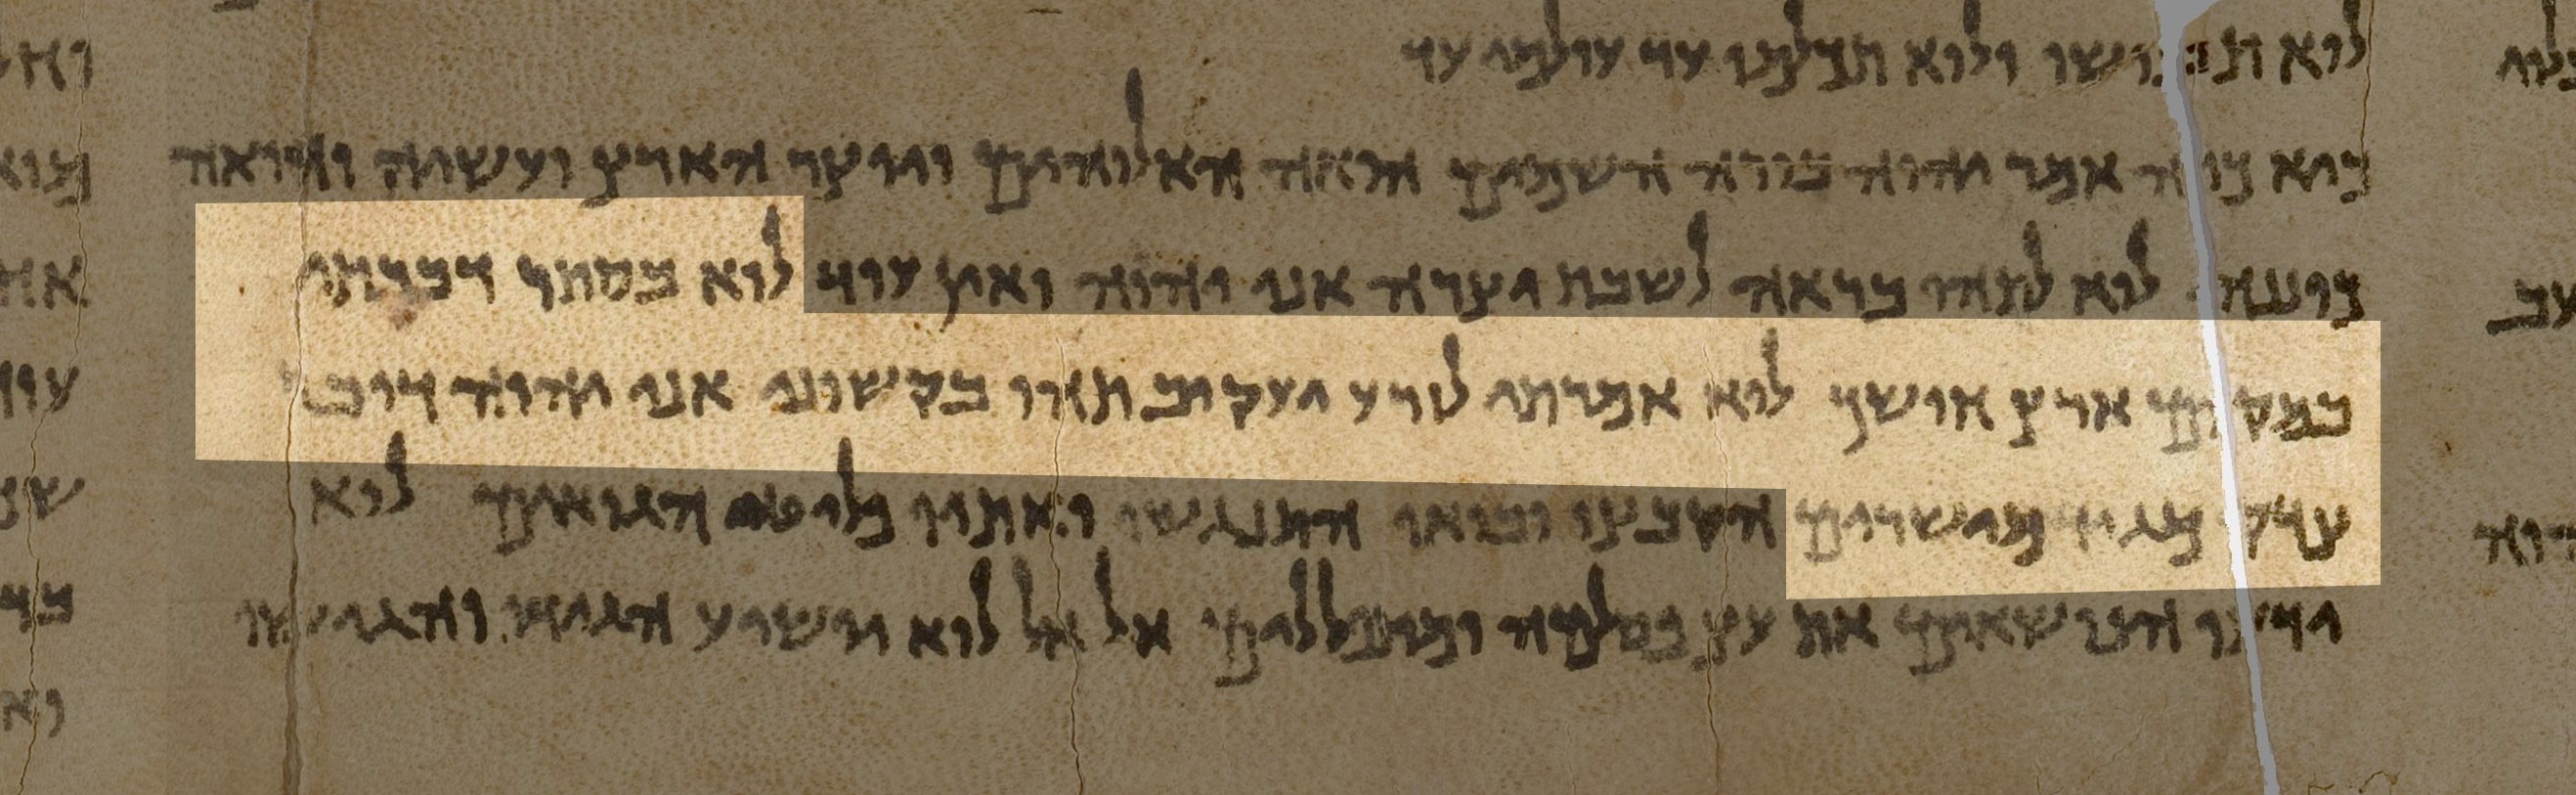 לוא תבושו ולוא תכלמו עד עולמי עד
כיא כוה אמר יהוה בורה השמים הואה האלוהים ויוצר הארץ ועשיה והואה
כוננה לוא לתהו בראה לשבת יצרה אני יהוה ואין עוד לוא בסתר דברתי
במקום ארץ חושך לוא אמרתי לזרע יעקוב תהו בקשוני אני יהוה דובר
צדק מגיד מישרים הקבצו ובואו התנגשו ואתיו פליטי הגואים לוא
ידעו הנושאים את עץ פסלמה ומתפללים אל אל לוא יושיע הגידו והגישו